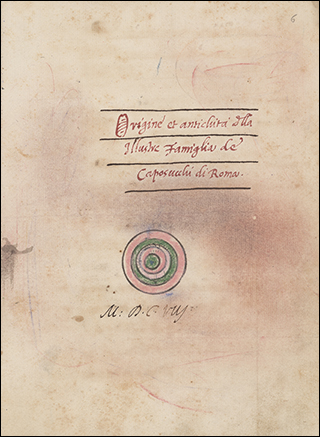 6
Origine et antichità della
Illustre Famiglia de
Capozucchi di Roma.
M: D. C. VIIJ.